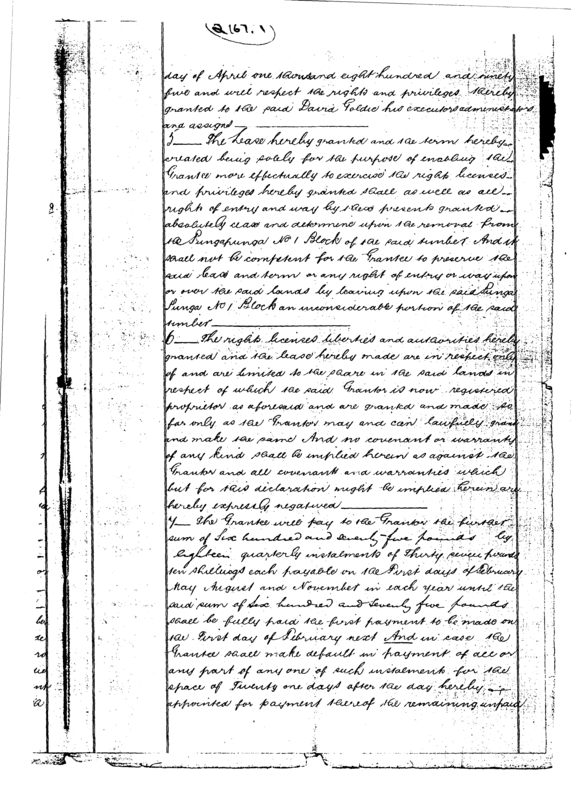 (2167.1)
day of April one thousand eight hundred and ninety
five and will respect the rights and privileges thereby
granted to the said David Goldie his executors administrators
and assigns
5 The lease hereby granted and the term hereby
created being solely for the purpose of enabling the
Grantee more effectually to exercise the right licenses
and privileges hereby granted shall as well as all
rights of entry and way by these presents granted
absolutely cease and determine upon the removal from
the Pungapunga No 1 Block of the said timber And it
shall not be competent for the Grantee to preserve the
said lease and term or any right of entry or way upon
or over the said lands by leaving upon the said Punga
Punga No 1 Block an inconsiderable portion of the said
timber
6 The rights licenses liberties and authorities hereby
granted and the lease hereby made are in respect only
of and are limited to the share in the said lands in
respect of which the said Grantor is now registered
proprietor as aforesaid and are granted and made so
far only as the Grantor may and can lawfully grant
and make the same And no covenant or warranty
of any kind shall be implied herein as against the
Grantor and all covenants and warranties which
but for this declaration might be implied herein are
hereby expressly negatived
7 The Grantee will pay to the Grantor the further
sum of Six hundred and seventy five pounds by
eighteen quarterly instalments of Thirty seven pounds
ten shillings each payable on the First days of February
May August and November in each year until the
said sum of Six hundred and seventy five pounds
shall be fully paid the first payment to be made on
the First day of February next And in case the
Grantee shall make default in payment of all or
any part of any one of such instalments for the
space of Twenty one days after the day hereby
appointed for payment thereof the remaining unpaid